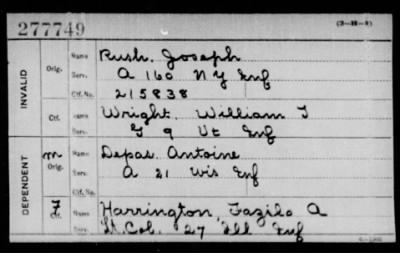 277749
(3-H-4)
INVALID
Orig. Name Rush, Joseph
Serv. A 160 N Y Inf
Ctf. No. 215838
Ctf. Name Wright, William J
G 9 Vt Inf
DEPENDENT
m Orig. Name Depas, Antoine
Serv. A 21 Wis Inf
Ctf. No.
7 Ctf. Name Harrington, Fazilo A
Serv. Lt. Col. 27 Ill Inf